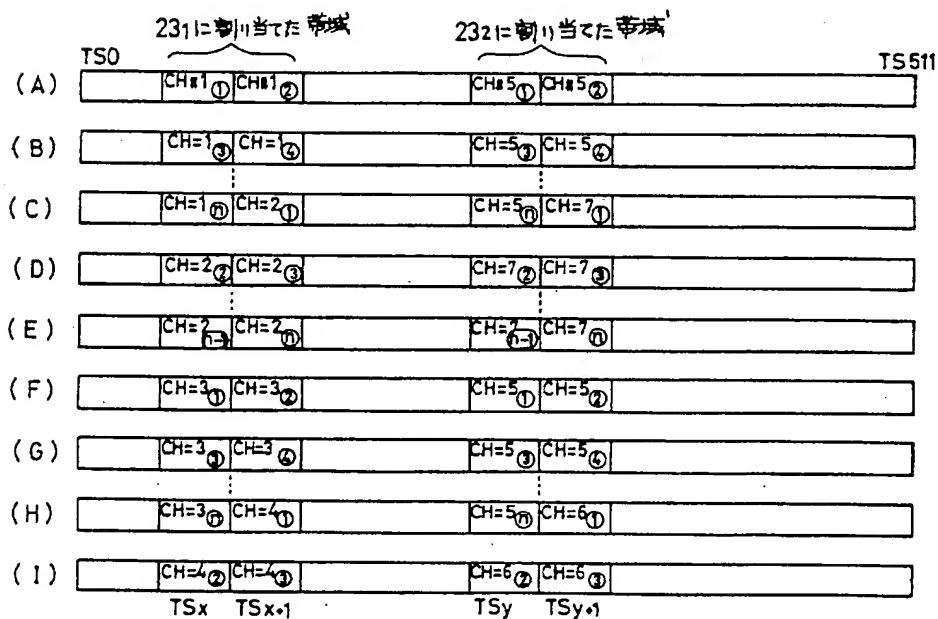 23₁に割り当てた帯域 23₂に割り当てた帯域
TS0 TS511
(A) CH#1① CH#1② CH#5① CH#5②
(B) CH=1③ CH=1④ CH=5③ CH=5④
(C) CH=1ⓝ CH=2① CH=5ⓝ CH=7①
(D) CH=2② CH=2③ CH=7② CH=7③
(E) CH=2(n-1) CH=2ⓝ CH=7(n-1) CH=7ⓝ
(F) CH=3① CH=3② CH=5① CH=5②
(G) CH=3③ CH=3④ CH=5③ CH=5④
(H) CH=3ⓝ CH=4① CH=5ⓝ CH=6①
(I) CH=4② CH=4③ CH=6② CH=6③
TSx TSx+1 TSy TSy+1